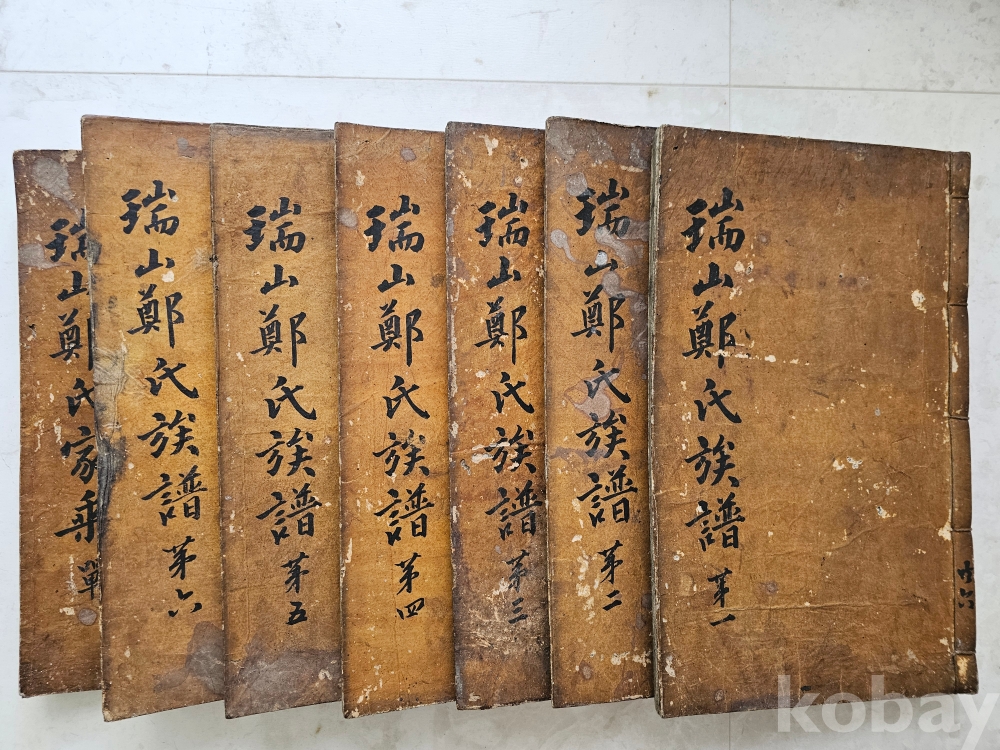 瑞山鄭氏族譜 第一
共六
瑞山鄭氏族譜 第二
瑞山鄭氏族譜 第三
瑞山鄭氏族譜 第四
瑞山鄭氏族譜 第五
瑞山鄭氏族譜 第六
瑞山鄭氏家乘 單
kobay